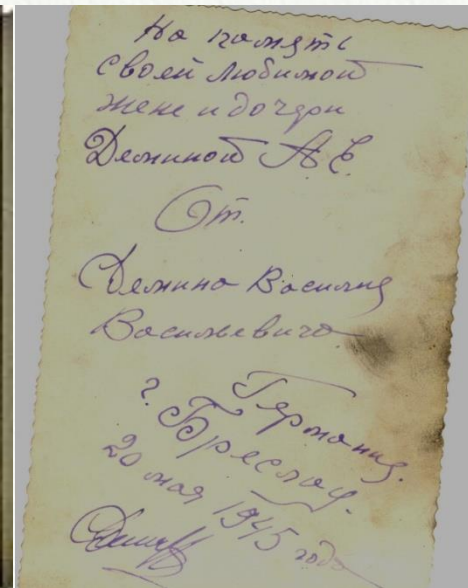 На память
своей любимой
жене и дочери
Деминой А.Е.
От.
Демина Василия
Васильевича
Германия.
г. Бреслау.
20 мая 1945 года